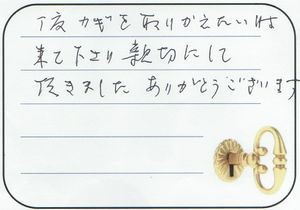 1度 カギを取りかえたい時
来て下さり 親切にして
頂きました ありがとうございます